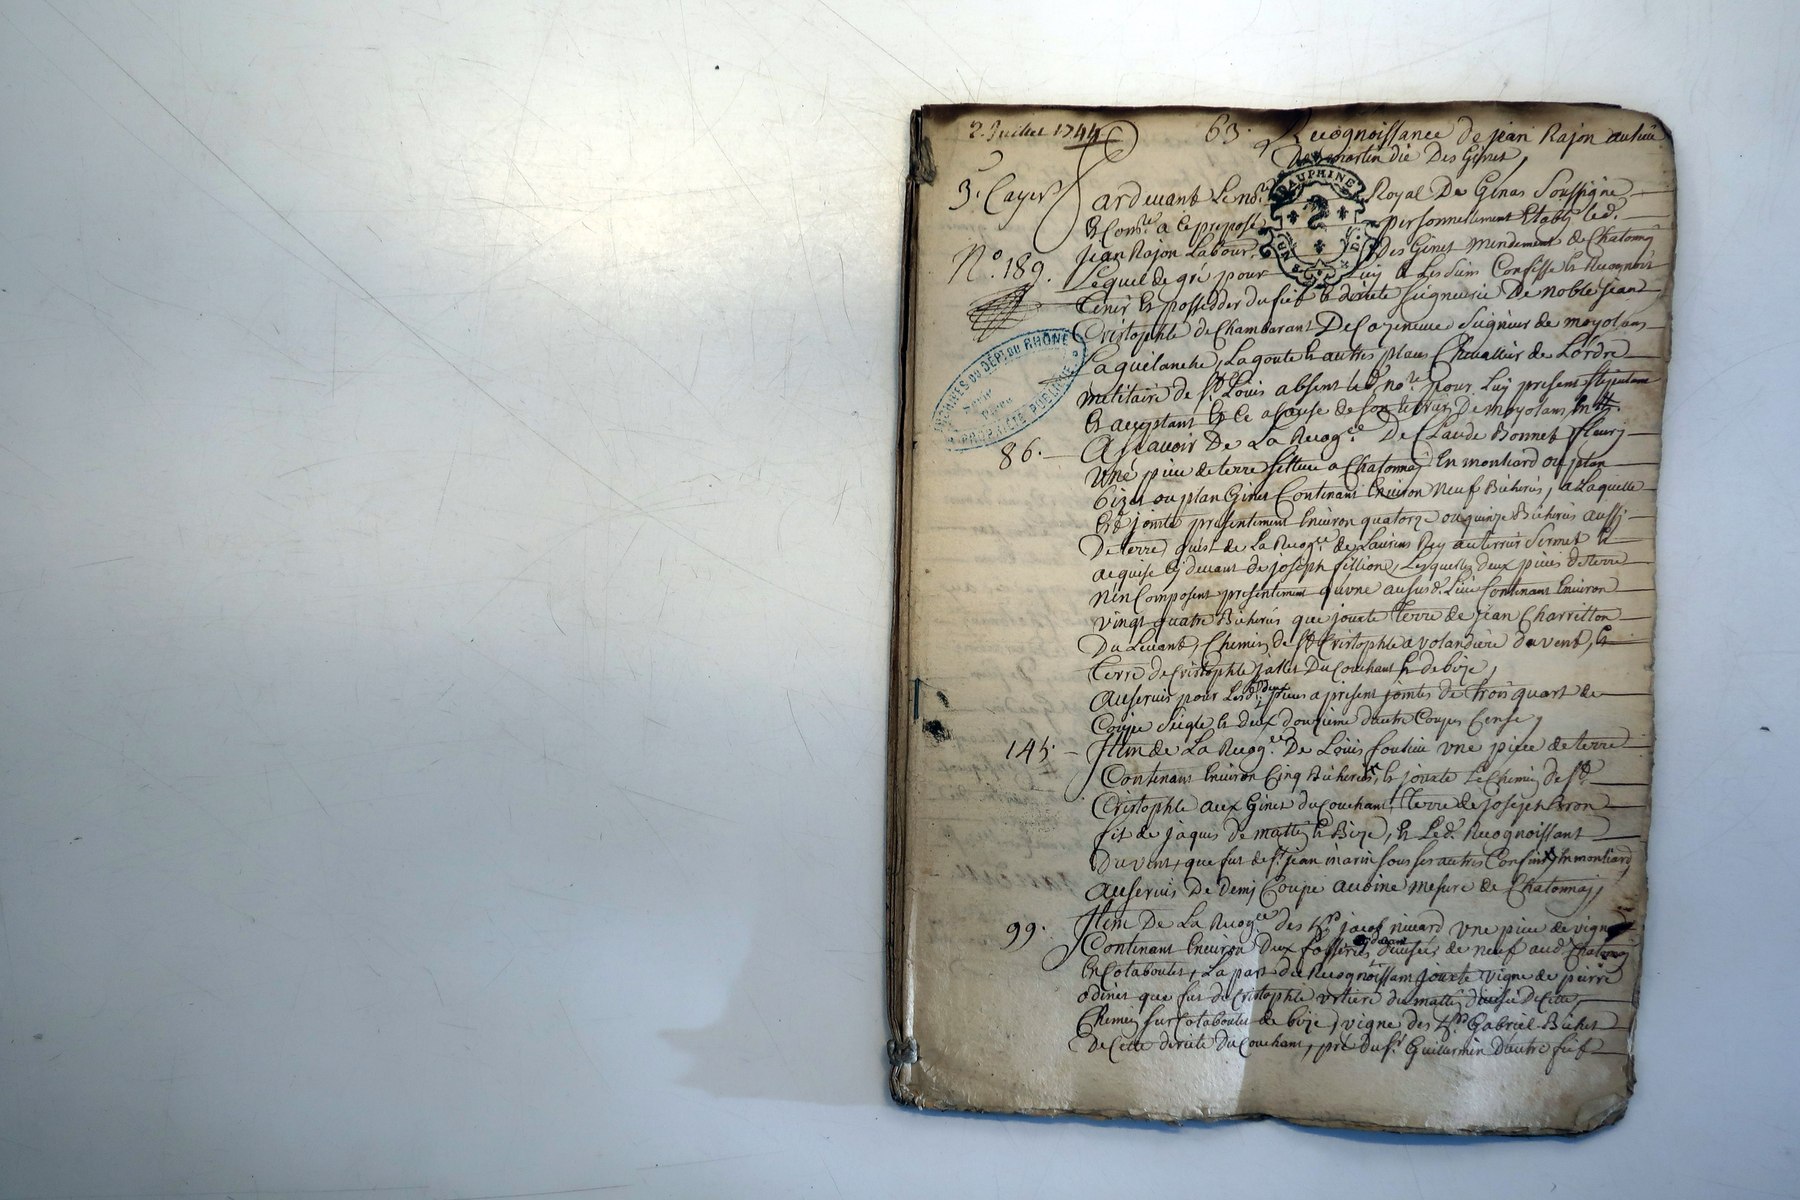 2. Juillet 1744
63. Recognoissance de jean Rajon
De martin die Des Ginet,
3.e Cayer
Pardevant Le no.re Royal De Genas Soussigné
Et Cons.er a ce preposé personnellement Etably led.
N.o 189.
jean Rajon Labour. Des Ginet mendement de Chatonay
Lequel de gré pour Luy & Les Siens Confesse & Recognoit
Tenir & posseder du fief & directe seigneurie De noble jean
Cristophle de Chambarant De Seigneur de moyolans
La goute & autres places Chevallier de Lordre
militaire de St. Loüis absent led. no.re pour Luy present stipulant
& acceptant Et Ce a Cause de son terrier De moyolans
86.
Asçavoir De La Recog.ce De Claude Bonnet fleury
Une piece de terre sittuee a Chatonnay En montiard ou plan
bizet ou plan Ginet Contenant Environ Neuf Bicherés, a Laquelle
Est jointe presentement Environ quatorze ou quinze Bicherés aussy
De terre quest de La Recog.ce de Laurens Rey
acquise cy devant de joseph fillion, Lesquelles deux pieces De terre
N'en Composent presentement qu'une aususd. Lieu Contenant Environ
vingt quatre Bicherés que jouxte Terre de jean Charretton
Du Levant, Chemin de St. Cristophle a volandiere du vent, &
Terre de Cristophle jallet Du Couchant & de bize,
Auservis pour Les.d. deux pieces a present jointes de trois quart de
Coupe Seigle & deux douzieme dautre Coupe Cense,
145.
Item de La Recog.ce De Loüis une piece de terre
Contenant Environ Cinq Bicherés, & jouxte Le Chemin de St.
Cristophle aux Ginet du Couchant, Terre de Joseph
fils de jaques de matin & Bize, & Led. Recognoissant
Du vent, que fut de Sr. jean marin sous ses autres Confins, En montiard
Auservis De Demy Coupe avoine mesure de Chatonnay,
99.
Item De La Recog.ce des hrs jacob une piece de vigne
Contenant Environ Deux fosserés de neuf aud. Chatonay
En Cotaboulet, La part du Recognoissant jouxte vigne de pierre
odinet que fut de Cristophle du matin De Cette,
Chemin sur Cotaboulet de bize, vigne des hrs Gabriel Bichet
De Cette directe Du Couchant, pré du Sr. Guillermin Dautre fief
DAUPHINE
ARCHIVES DU DÉPT DU RHÔNE
Série
Pièce
PROPRIÉTÉ PUBLIQUE